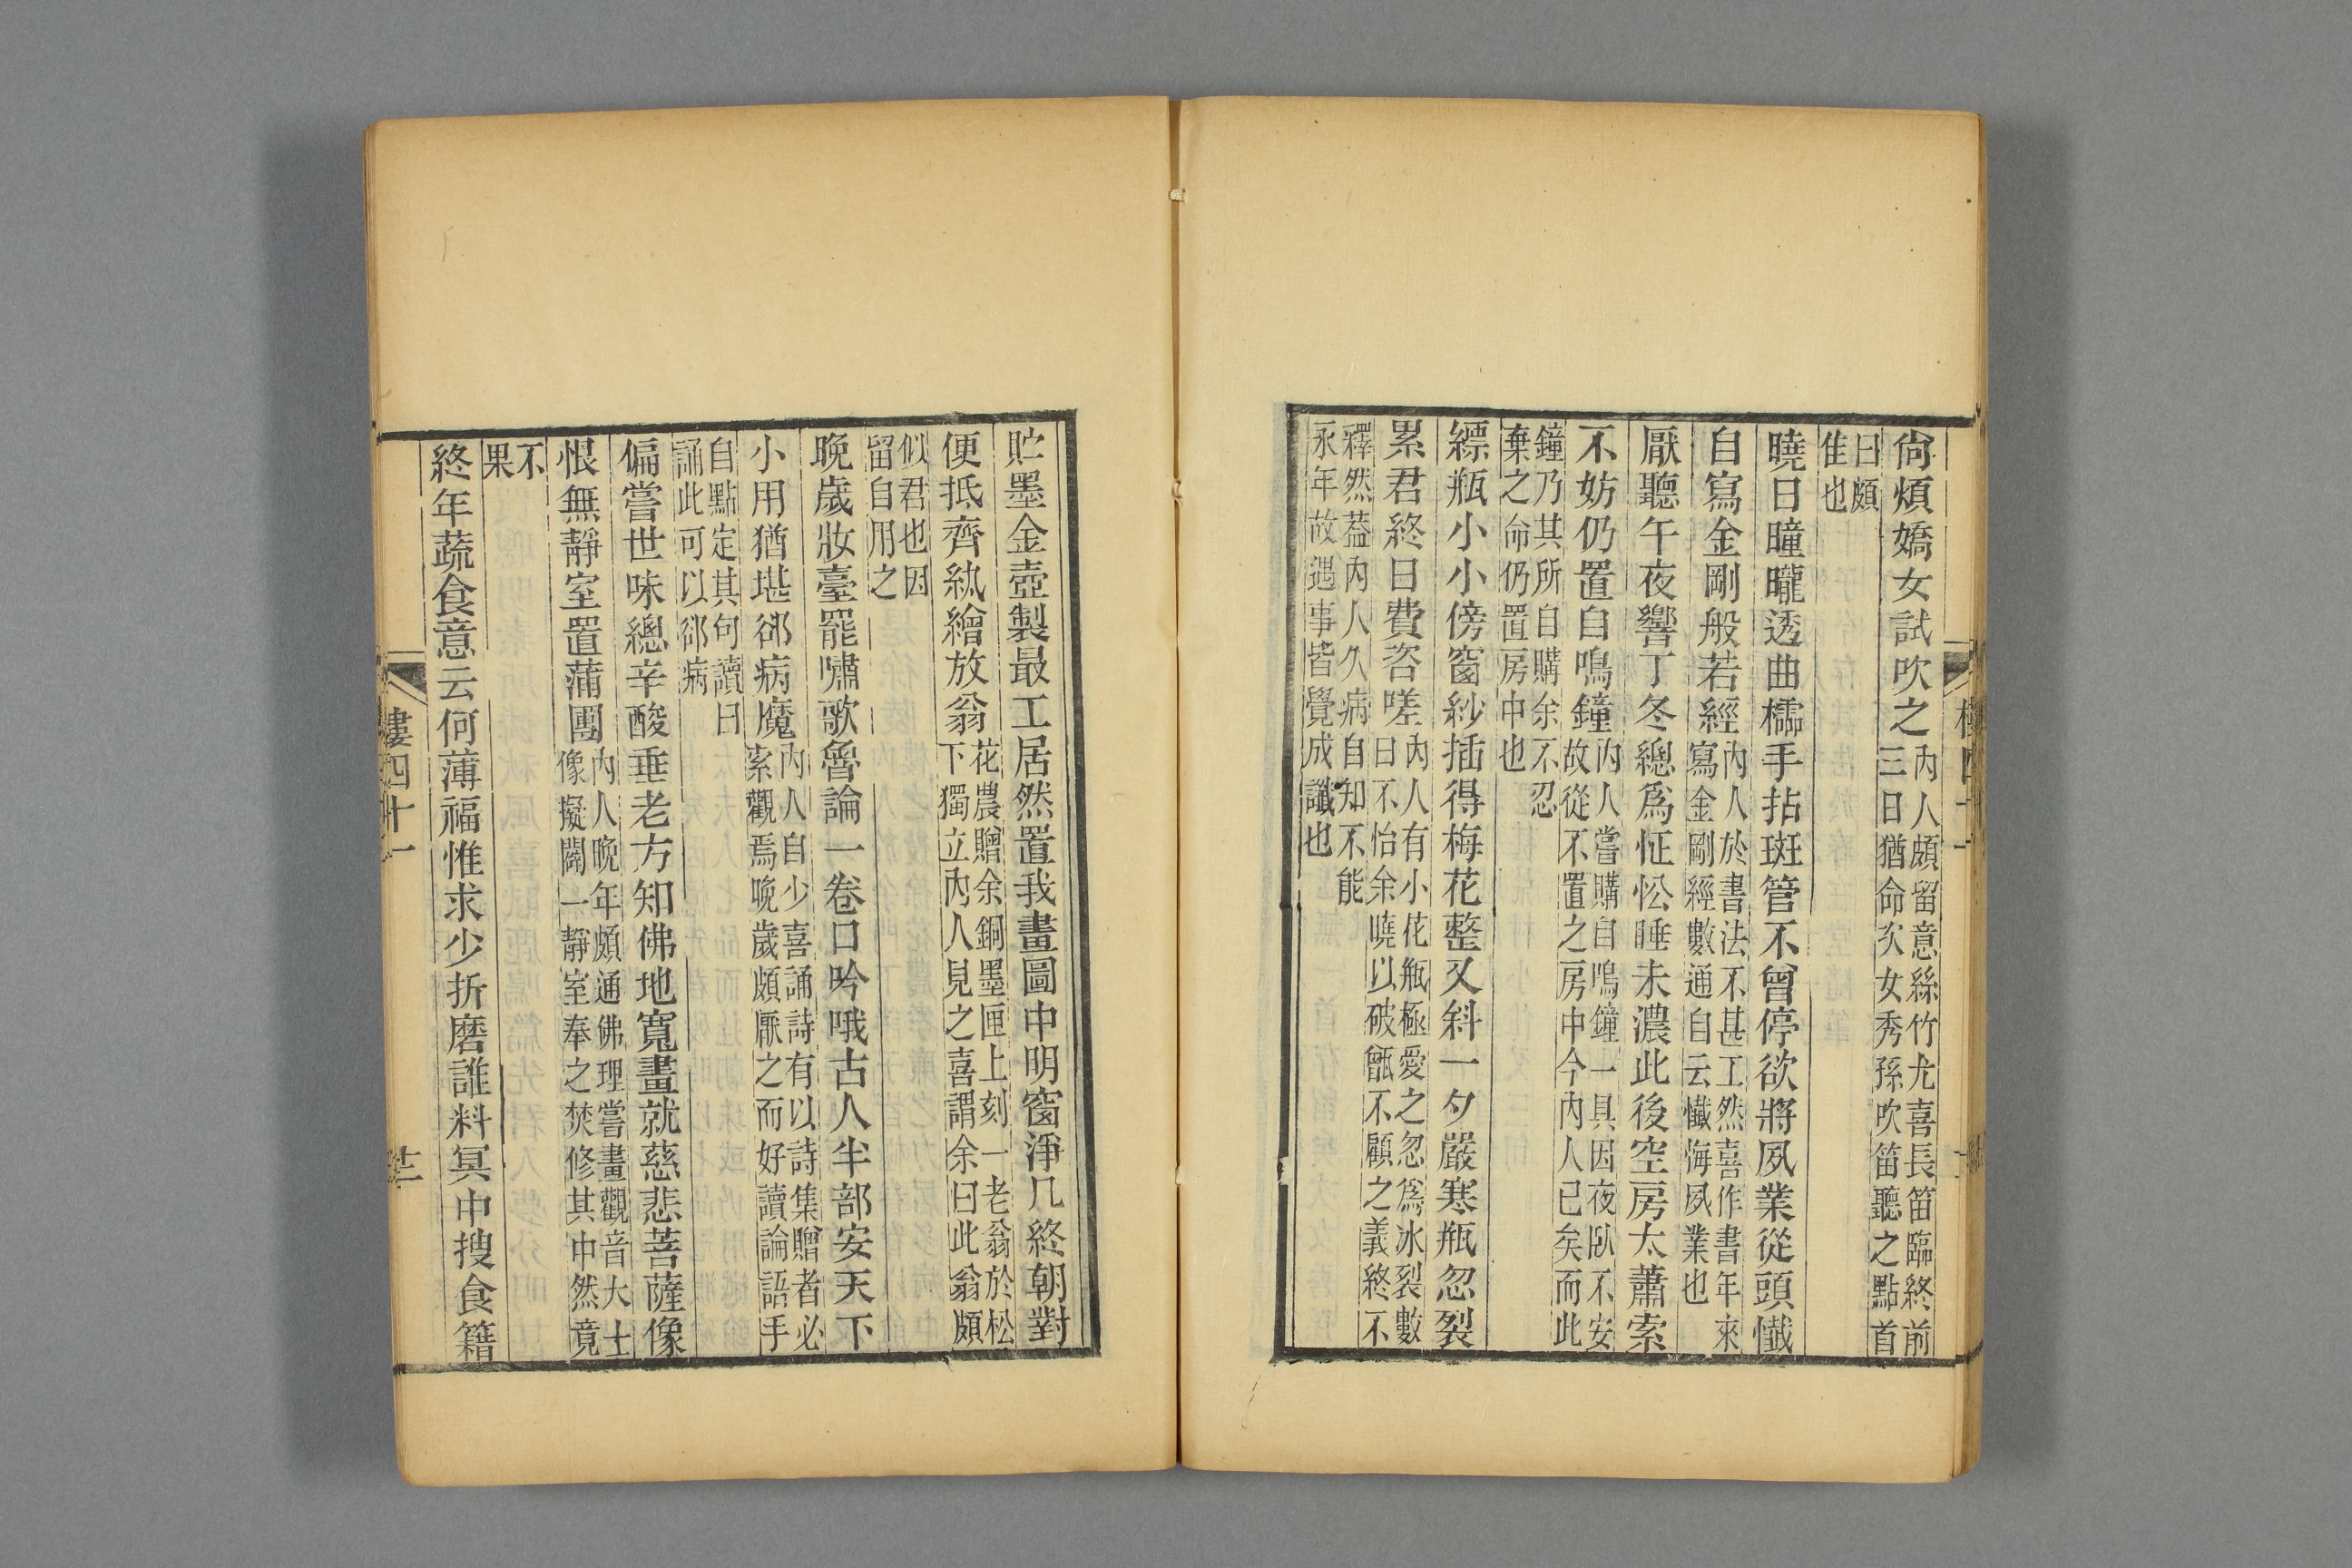 尙煩嬌女試吹之內人頗留意絲竹尤喜長笛臨終前
三日猶命次女秀孫吹笛聽之點首
曰頗
佳也
曉日曈曨透曲櫺手拈斑管不曾停欲將夙業從頭懺
自寫金剛般若經內人於書法不甚工然喜作書年來
寫金剛經數通自云懺悔夙業也
厭聽午夜響丁冬總爲怔忪睡未濃此後空房太蕭索
不妨仍置自鳴鐘內人嘗購自鳴鐘一具因夜臥不安
故從不置之房中今內人已矣而此
鐘乃其所自購余不忍
棄之命仍置房中也
縹瓶小小傍窗紗插得梅花整又斜一夕嚴寒瓶忽裂
累君終日費咨嗟內人有小花瓶極愛之忽爲冰裂數
日不怡余曉以破甑不顧之義終不
釋然葢內人久病自知不能
永年故遇事皆覺成讖也
貯墨金壺製最工居然置我畫圖中明窗淨几終朝對
便抵齊紈繪放翁花農贈余銅墨匣上刻一老翁於松
下獨立內人見之喜謂余曰此翁頗
似君也因
留自用之
晚歲妝臺罷嘯歌魯論一卷口吟哦古人半部安天下
小用猶堪郤病魔內人自少喜誦詩有以詩集贈者必
索觀焉晚歲頗厭之而好讀論語手
自點定其句讀曰
誦此可以郤病
偏嘗世味總辛酸垂老方知佛地寬畫就慈悲菩薩像
恨無靜室置蒲團內人晚年頗通佛理嘗畫觀音大士
像擬闢一靜室奉之焚修其中然竟
不
果
終年蔬食意云何薄福惟求少折磨誰料冥中搜食籍
樓四十一